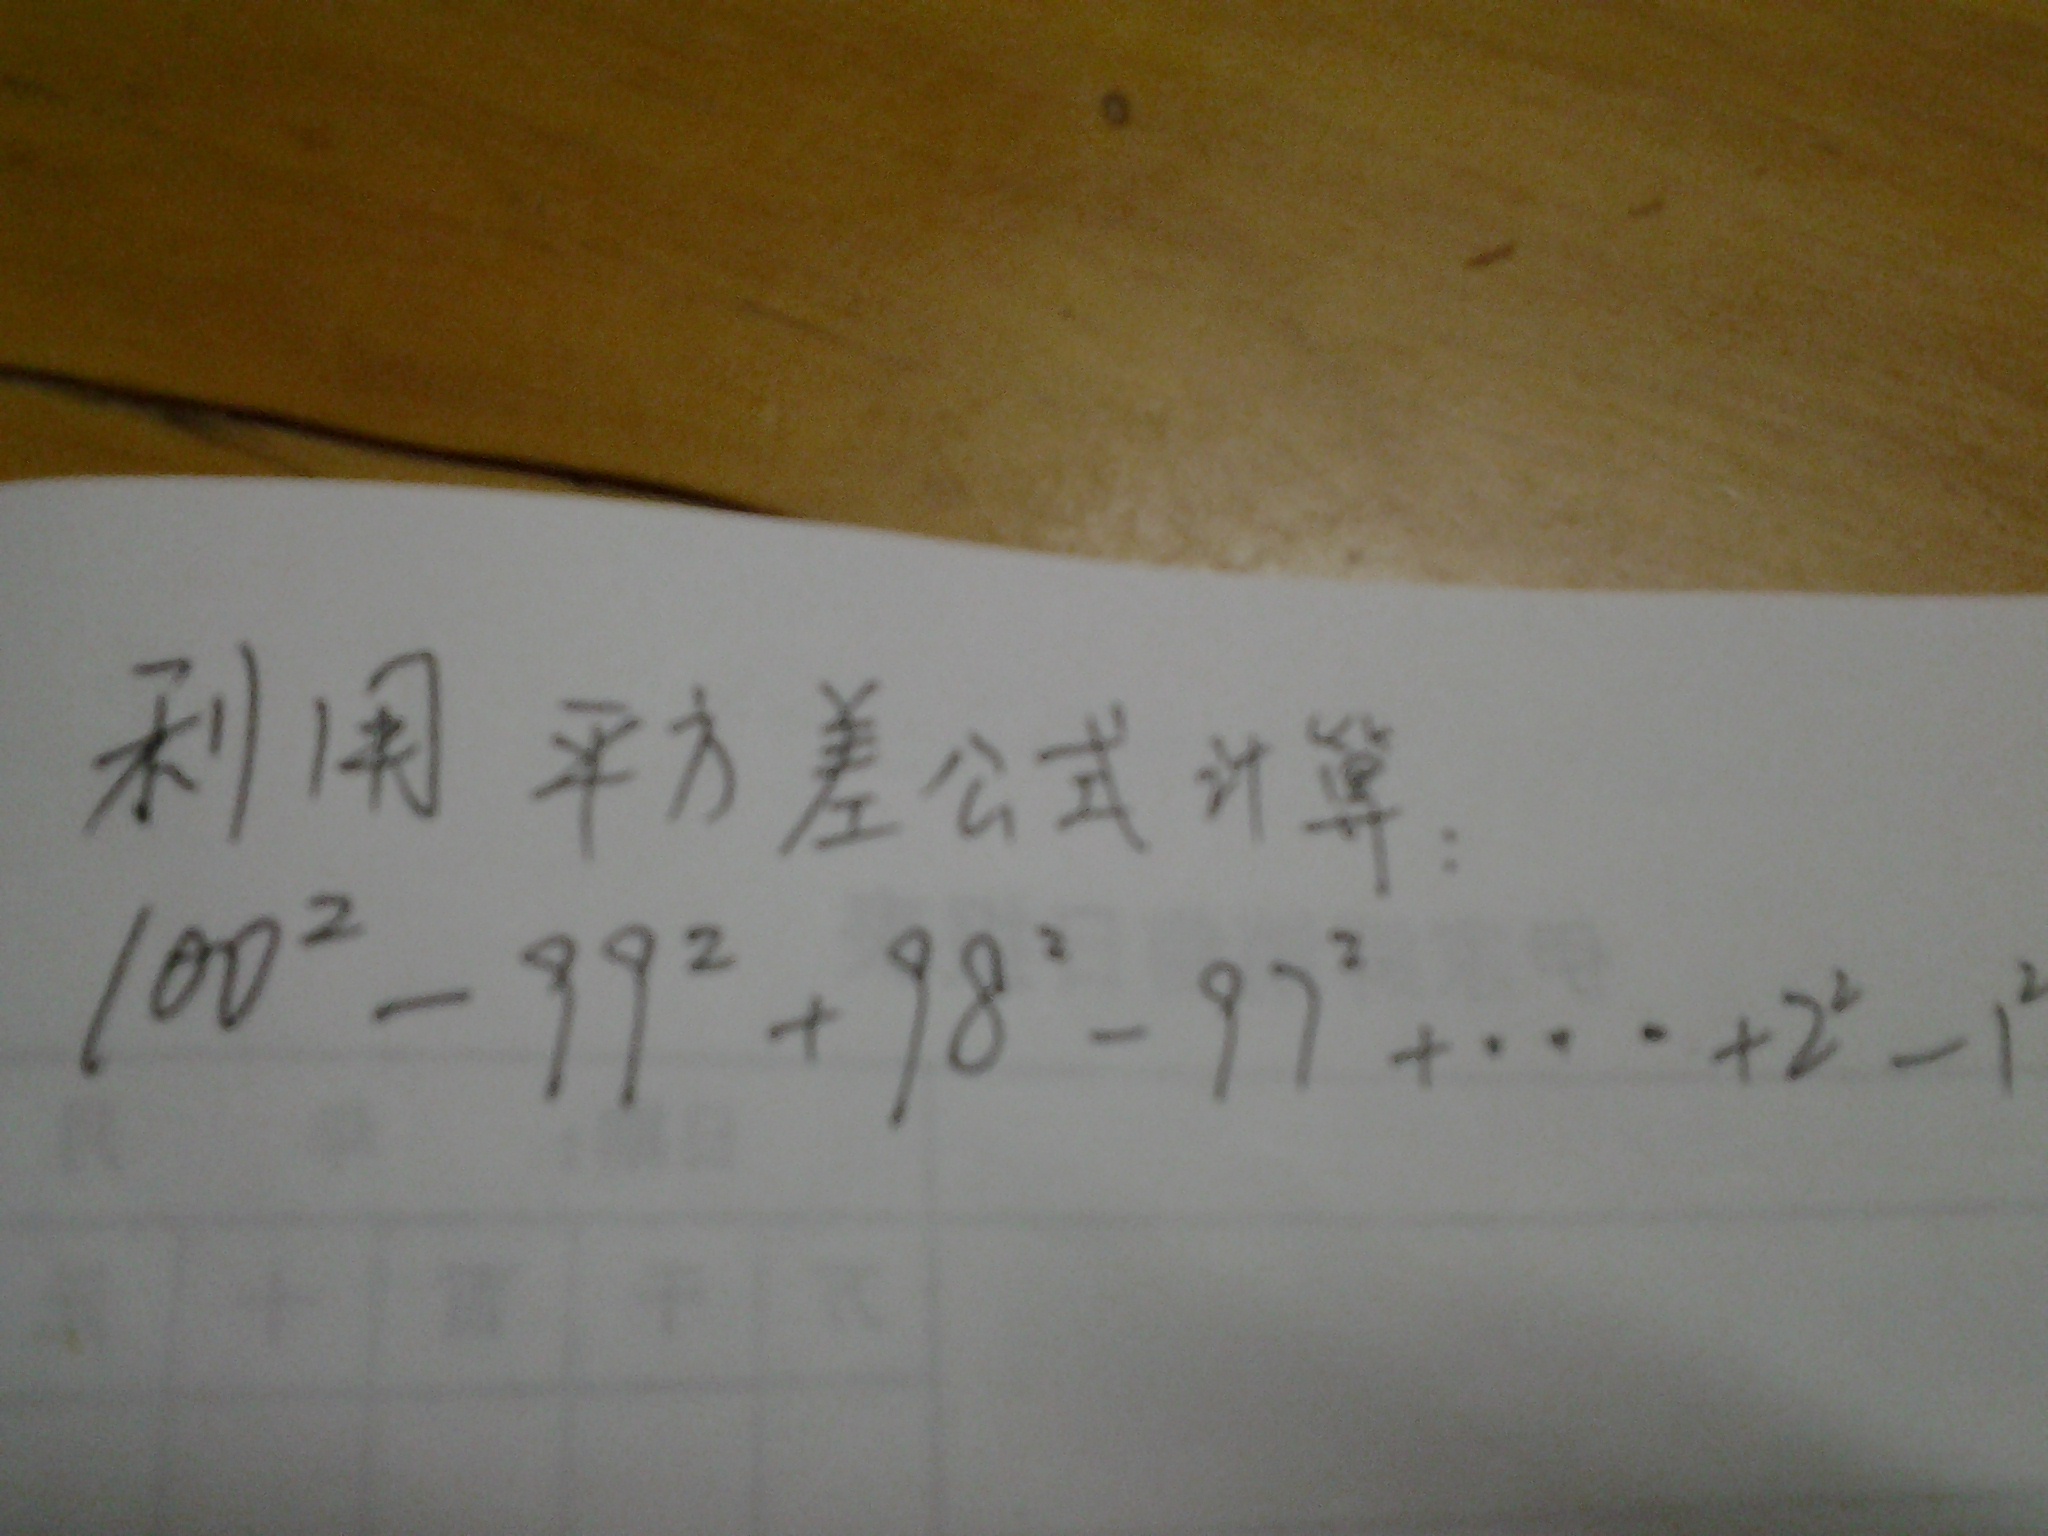 利用平方差公式计算:
100² - 99² + 98² - 97² + ···· + 2² - 1²